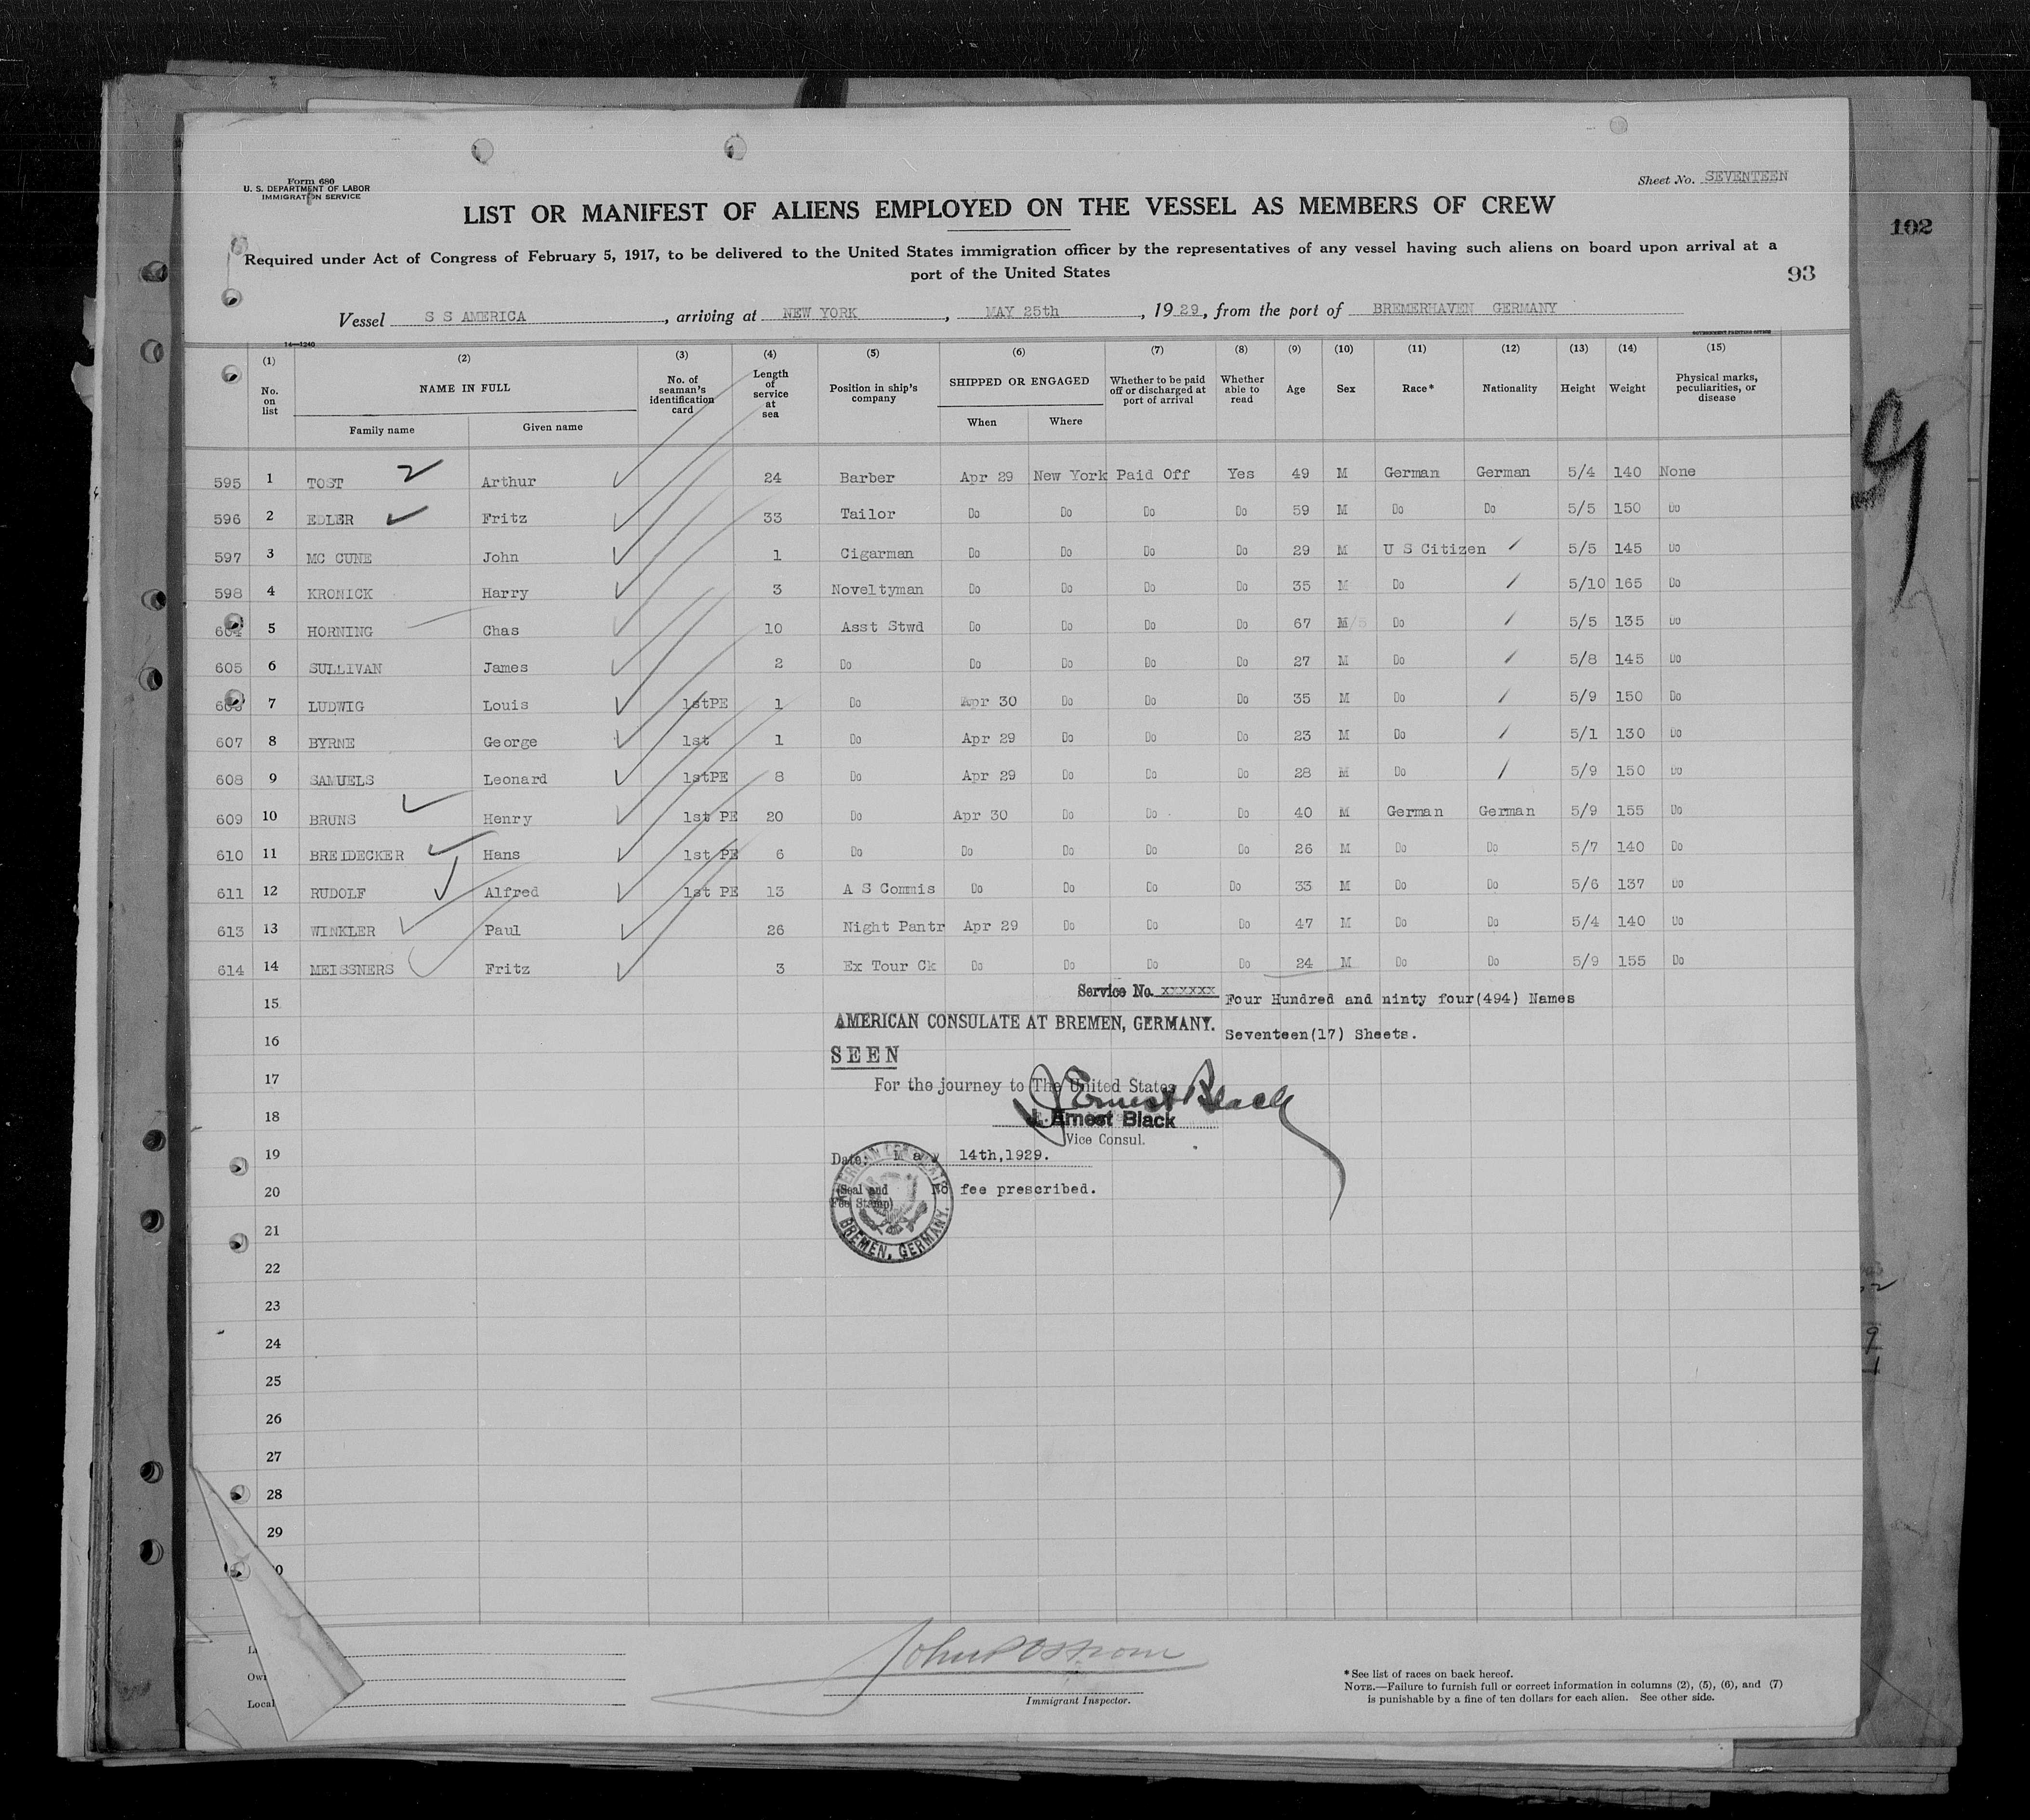 Form 680
U. S. DEPARTMENT OF LABOR
IMMIGRATION SERVICE
Sheet No. SEVENTEEN
LIST OR MANIFEST OF ALIENS EMPLOYED ON THE VESSEL AS MEMBERS OF CREW
102
Required under Act of Congress of February 5, 1917, to be delivered to the United States immigration officer by the representatives of any vessel having such aliens on board upon arrival at a
port of the United States
93
Vessel S S AMERICA, arriving at NEW YORK, MAY 25th, 1929, from the port of BREMERHAVEN GERMANY
14—1240
GOVERNMENT PRINTING OFFICE
(1) (2) (3) (4) (5) (6) (7) (8) (9) (10) (11) (12) (13) (14) (15)
No. on list NAME IN FULL No. of seaman's identification card Length of service at sea Position in ship's company SHIPPED OR ENGAGED Whether to be paid off or discharged at port of arrival Whether able to read Age Sex Race* Nationality Height Weight Physical marks, peculiarities, or disease
Family name Given name When Where
595 1 TOST 2 Arthur 24 Barber Apr 29 New York Paid Off Yes 49 M German German 5/4 140 None
596 2 EDLER Fritz 33 Tailor Do Do Do Do 59 M Do Do 5/5 150 Do
597 3 MC CUNE John 1 Cigarman Do Do Do Do 29 M U S Citizen 5/5 145 Do
598 4 KRONICK Harry 3 Noveltyman Do Do Do Do 35 M Do 5/10 165 Do
604 5 HORNING Chas 10 Asst Stwd Do Do Do Do 67 M Do 5/5 135 Do
605 6 SULLIVAN James 2 Do Do Do Do Do 27 M Do 5/8 145 Do
7 LUDWIG Louis 1stPE 1 Do Apr 30 Do Do Do 35 M Do 5/9 150 Do
607 8 BYRNE George 1st 1 Do Apr 29 Do Do Do 23 M Do 5/1 130 Do
608 9 SAMUELS Leonard 1stPE 8 Do Apr 29 Do Do Do 28 M Do 5/9 150 Do
609 10 BRUNS Henry 1st PE 20 Do Apr 30 Do Do Do 40 M German German 5/9 155 Do
610 11 BREIDECKER Hans 1st PE 6 Do Do Do Do Do 26 M Do Do 5/7 140 Do
611 12 RUDOLF Alfred 1st PE 13 A S Commis Do Do Do Do 33 M Do Do 5/6 137 Do
613 13 WINKLER Paul 26 Night Pantr Apr 29 Do Do Do 47 M Do Do 5/4 140 Do
614 14 MEISSNERS Fritz 3 Ex Tour Ck Do Do Do Do 24 M Do Do 5/9 155 Do
15 Service No. xxxxxx Four Hundred and ninty four(494) Names
AMERICAN CONSULATE AT BREMEN, GERMANY.
16 Seventeen(17) Sheets.
SEEN
17 For the journey to The United States
J Ernest Black
18 J. Ernest Black
Vice Consul.
19 Date: May 14th,1929.
20 (Seal and Fee Stamp) No fee prescribed.
AMERICAN CONSULATE BREMEN, GERMANY.
21
22
23
24
25
26
27
28
29
John Ostrom
Immigrant Inspector.
Local
* See list of races on back hereof.
NOTE.—Failure to furnish full or correct information in columns (2), (5), (6), and (7)
is punishable by a fine of ten dollars for each alien. See other side.